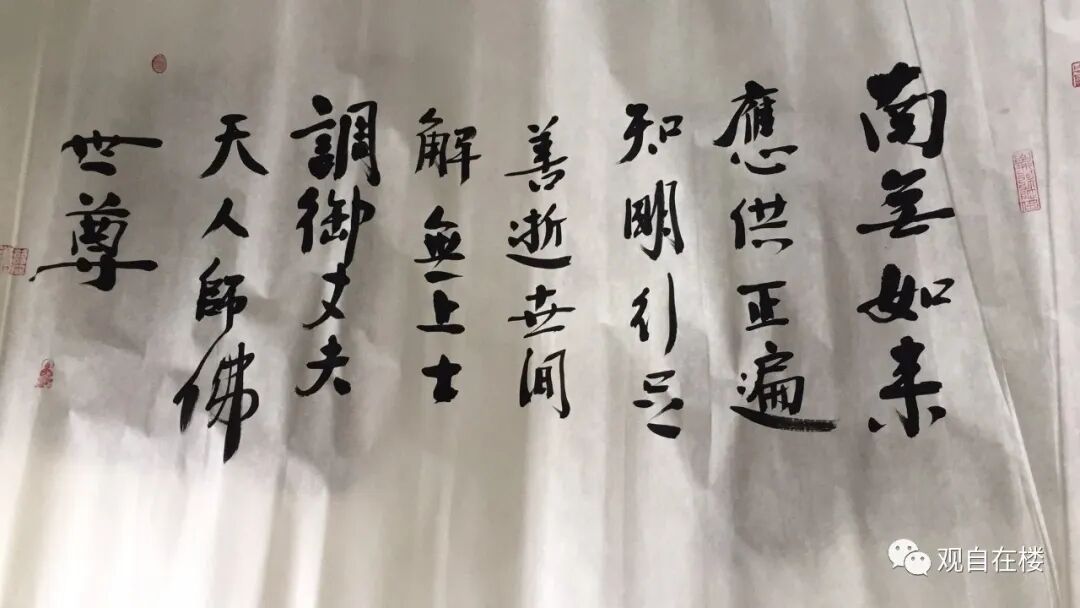 南无如来
應供正遍
知明行足
善逝世间
解無上士
調御丈夫
天人師佛
世尊
观自在楼